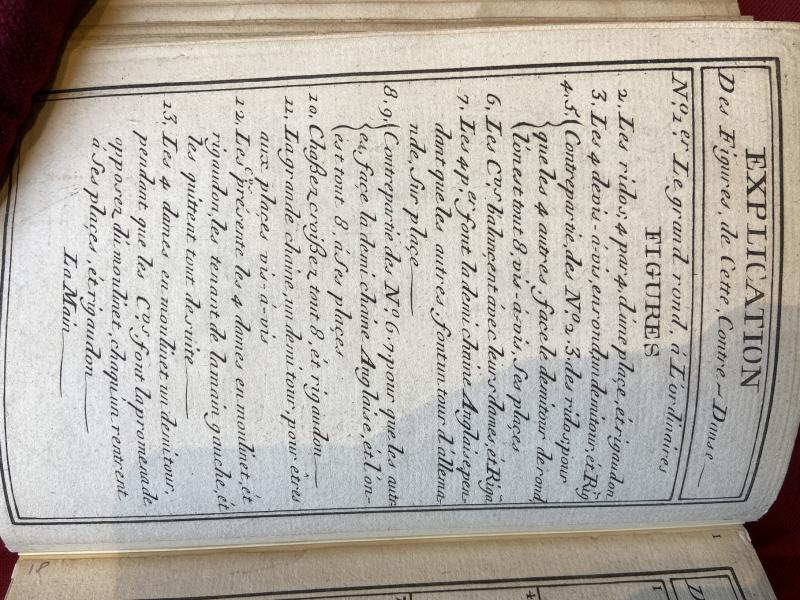 EXPLICATION
Des Figures, de Cette Contre-Danse
N.º 1.er Le grand rond, á L'ordinaires
FIGURES
2. Les ridos, 4 par 4, d'úne plaçe, ét rigaudon
3. Les 4 de vis-á-vis, en rond, un demitour, ét Rig.n
4.5. Contrepartie, des N.º 2, 3 des ridos, pour
que les 4 autres, façe le demitour de rond,
l'on est tout 8, vis-á-vis, Ses plaçes
6. Les C.rs balançent avec leurs dames, ét Riga.n
7. Les 4 p.er font la demi chaîne Anglaise, pen-
dant que les autres, font un tour d'allema-
nde, Sur plaçe
8.9. Contrepartie des N.º 6.7 pour que les autr
es, façe la demi chaîne Anglaise, ét l'on-
ést tout 8, á Ses plaçes
10. Chaßez croißez tout 8, ét rigaudon
11. La grande chaîne, un demi tour, pour êtres
aux plaçes vis-á-vis
12. Les C.rs présente les 4 dames en moulinet, ét
rigaudon, les tenant de la main gauche, ét
les quitent tout de suite
13. Les 4 dames en moulinet un demi tour,
pendant que les C.rs font la promenade
opposez du moulinet, chaqu'un rentrent
a Ses plaçes, ét rigaudon
La Main
1
18